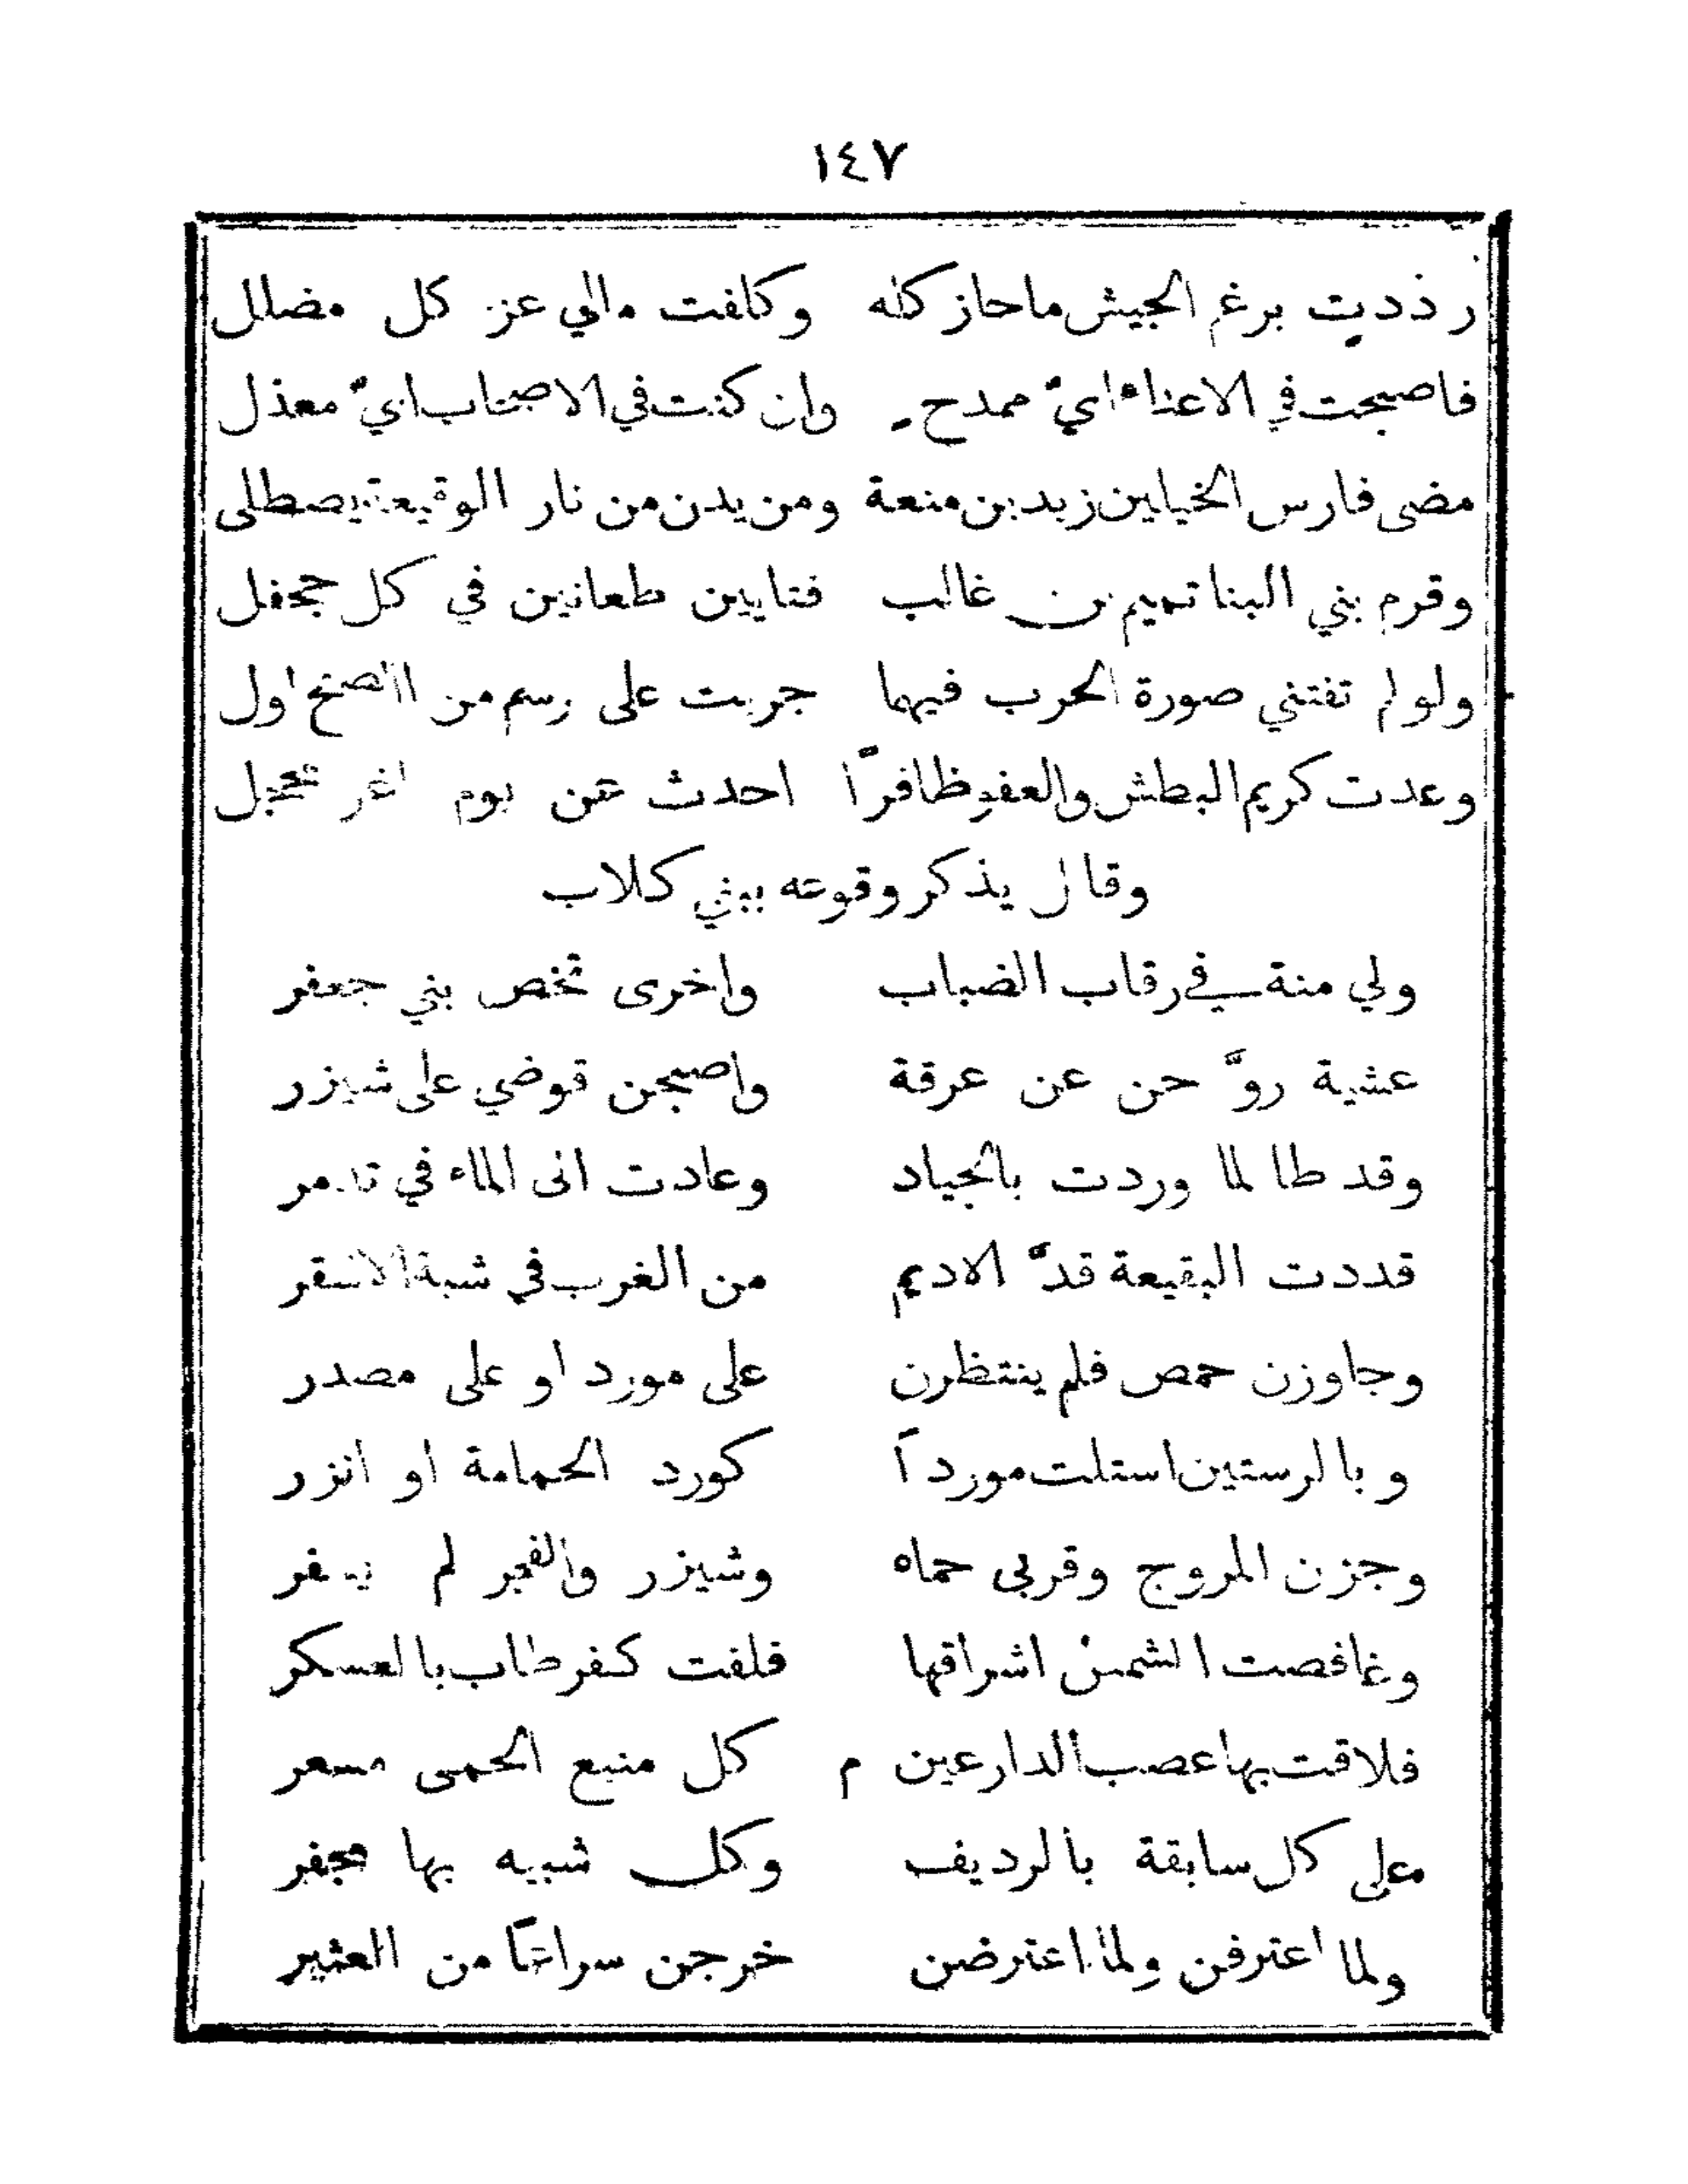 ١٤٧
رددت برغم الجيش ماحاز كله وكلفت مالي عز كل مضلل
فاصبحت في الاعداء ايّ ممدح وان كنت في الاصحاب ايّ معذل
مضى فارس الخيلين زيد بن منعة ومن يدن من نار الوقيعة يصطلى
وقرم بني البنا تميم بن غالب فتايين طعانين في كل جحفل
ولو لم تفتني صورة الحرب فيهما جريت على رسم من الصفح اول
وعدت كريم البطش والعفو ظافرًا احدث عن يوم اغر محجل
وقال يذكر وقوعه ببني كلاب
ولي منة في رقاب الضباب واخرى تخص بني جعفر
عشية روَّحن عن عرقة واصبحن فوضي على شيزر
وقد طالما وردت بالجياد وعادت الى الماء في تدمر
قددت البقيعة قدَّ الاديم من الغرب في شبة الاشقر
وجاوزن حمص فلم ينتظرن على مورد او على مصدر
وبالرستين استلت موردًا كورد الحمامة او انزر
وجزن المروج وقربى حماه وشيزر والفجر لم يسفر
وغافصت الشمس اشراقها فلفت كفرطاب بالعسكر
فلاقت بها عصب الدارعين م كل منيع الحمى مسعر
على كل سابقة بالرديف وكل شبيه بها مجفر
ولما اعترفن ولما اعترضن خرجن سراعًا من العثير